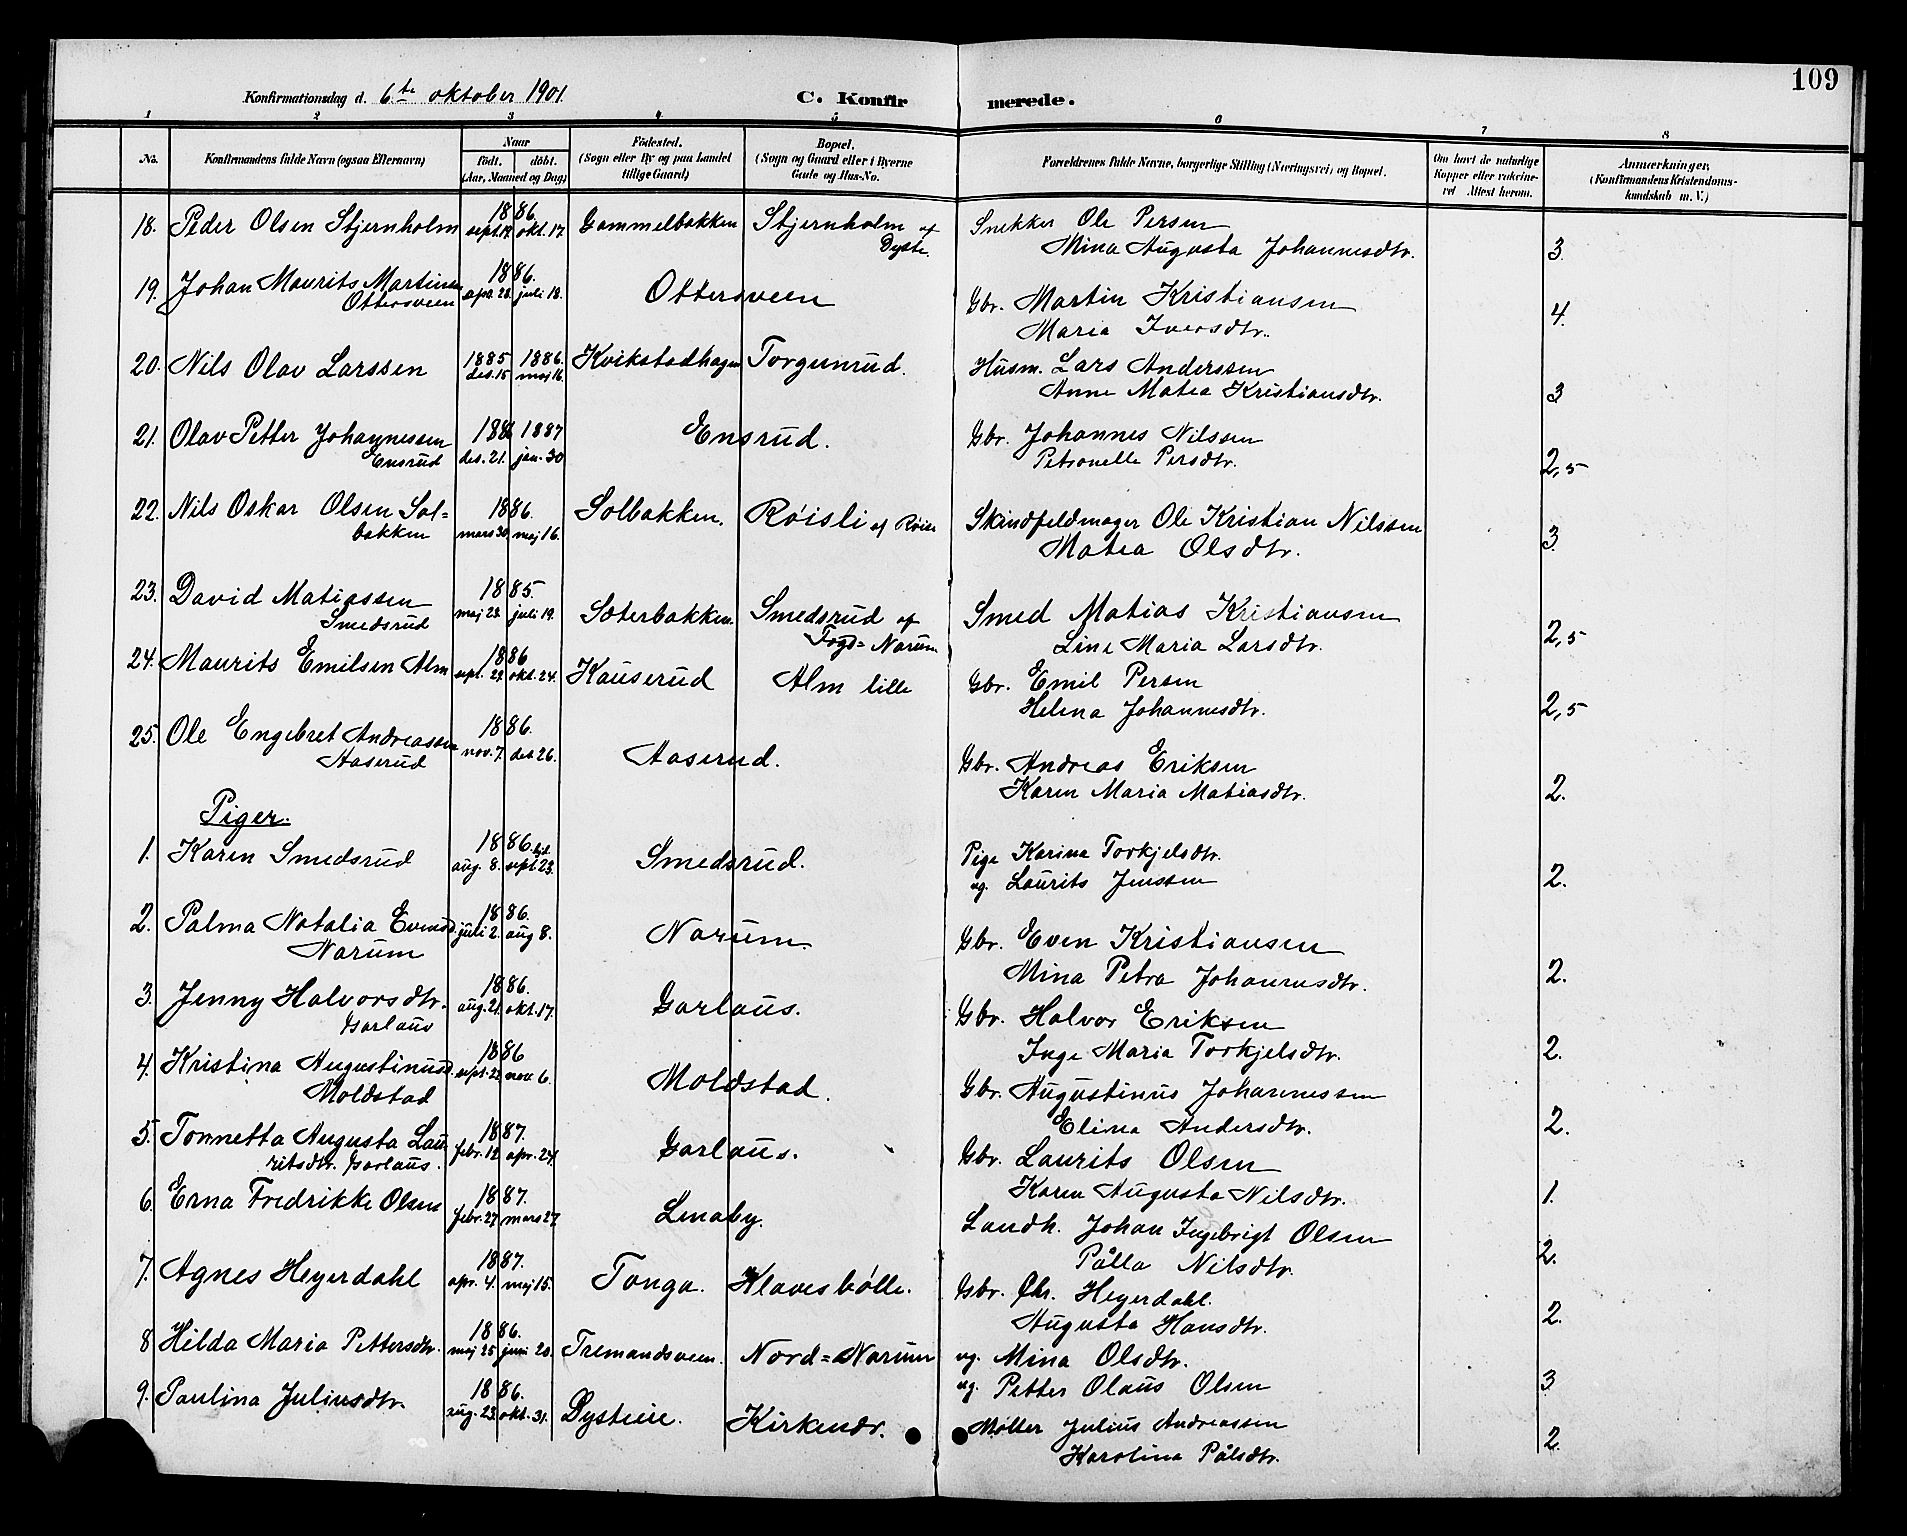 109
Konfirmationsdag d. 6te oktober 1901.
C. Konfirmerede.
1 2 3 4 5 6 7 8
No.
Konfirmandens fulde Navn (ogsaa Efternavn)
Naar
födt. döbt.
(Aar, Maaned og Dag)
Födested.
(Sogn eller By og paa Landet
tillige Gaard)
Bopæl.
(Sogn og Gaard eller i Byerne
Gade og Hus-No.
Forældrenes fulde Navne, borgerlige Stilling (Næringsvei) og Bopæl.
Om havt de naturlige
Kopper eller vakcine-
ret Attest herom.
Anmærkninger,
(Konfirmandens Kristendoms-
kundskab m. V.)
18. Peder Olsen Stjernholm 1886. sept. 19. okt. 17. Gammelbakken Stjernholm af
Dyste.
Snekker Ole Persen
Mina Augusta Johannesdtr. 3.
19. Johan Maurits Martinsen
Ottersveen 1886. apr. 28. juli 18. Ottersveen
Gbr. Martin Kristiansen
Maria Iversdtr. 4.
20. Nils Olav Larssen 1885 des. 15 1886. maj 16. Kvikstadhagen Torgunrud.
Husm. Lars Anderssen
Anne Matea Kristiansdtr. 3
21. Olav Petter Johannessen
Ensrud 1886 des. 21. 1887 jan. 30 Ensrud.
Gbr. Johannes Nilssen
Petronelle Persdtr. 2,5
22. Nils Oskar Olsen Sol=
bakken 1886. mars 30. maj 16. Solbakken. Røisli af Røise
Skindfeldmager Ole Kristian Nilssen
Matea Olsdtr. 3.
23. David Matiassen
Smedsrud 1885. maj 23. juli 19. Sæterbakken. Smedsrud af
Fogd=Narum
Smed Matias Kristiansen
Line Maria Larsdtr. 2,5
24. Maurits Emilsen Alm 1886 sept. 22. okt. 24. Kauserud Alm lille
Gbr. Emil Persen
Helena Johannesdtr. 2,5
25. Ole Engebret Andreassen
Aaserud 1886. nov. 7. des. 26. Aaserud.
Gbr. Andreas Eriksen
Karen Maria Matiasdtr. 2.
Piger.
1. Karen Smedsrud 1886. aug. 8. sept 23. Smedsrud.
Pige Karina Torkjelsdtr.
ug. Laurits Jenssen 2.
2. Palma Natalia Evensd.
Narum 1886. juli 2. aug 8. Narum.
Gbr. Even Kristiansen
Mina Petra Johannesdtr. 2.
3. Jenny Halvorsdtr.
Garlaus 1886. aug. 21. okt. 17. Garlaus.
Gbr. Halvor Eriksen
Inge Maria Torkjelsdtr. 2.
4. Kristina Augustinusd.
Moldstad 1886 sept. 22. nov. 6. Moldstad.
Gbr. Augustinus Johannessen
Elina Andersdtr. 2.
5. Tonnetta Augusta Lau-
ritsdtr. Garlaus. 1887. febr. 12. apr. 24. Garlaus.
Gbr. Laurits Olsen
Karen Augusta Nilsdtr. 1.
6. Erna Fredrikke Olsen 1887. febr. 27. mars 27. Lenaby.
Landh. Johan Ingebrigt Olsen
Pålla Nilsdtr. 2.
7. Agnes Heyerdahl 1887. apr. 4. maj 15. Tonga. Klavesbølle.
Gbr. Chr. Heyerdahl.
Augusta Hansdtr. 2.
8 Hilda Maria Pettersdtr. 1886. maj 25 juni 20. Tremandsveen. Nord=Narum
ug. Mina Olsdtr.
ug. Petter Olaus Olsen 3
9. Paulina Juliusdtr. 1886. aug. 23. okt. 31. Dysteeie. Kirkendr.
Møller Julius Andreassen
Karolina Pålsdtr. 2.